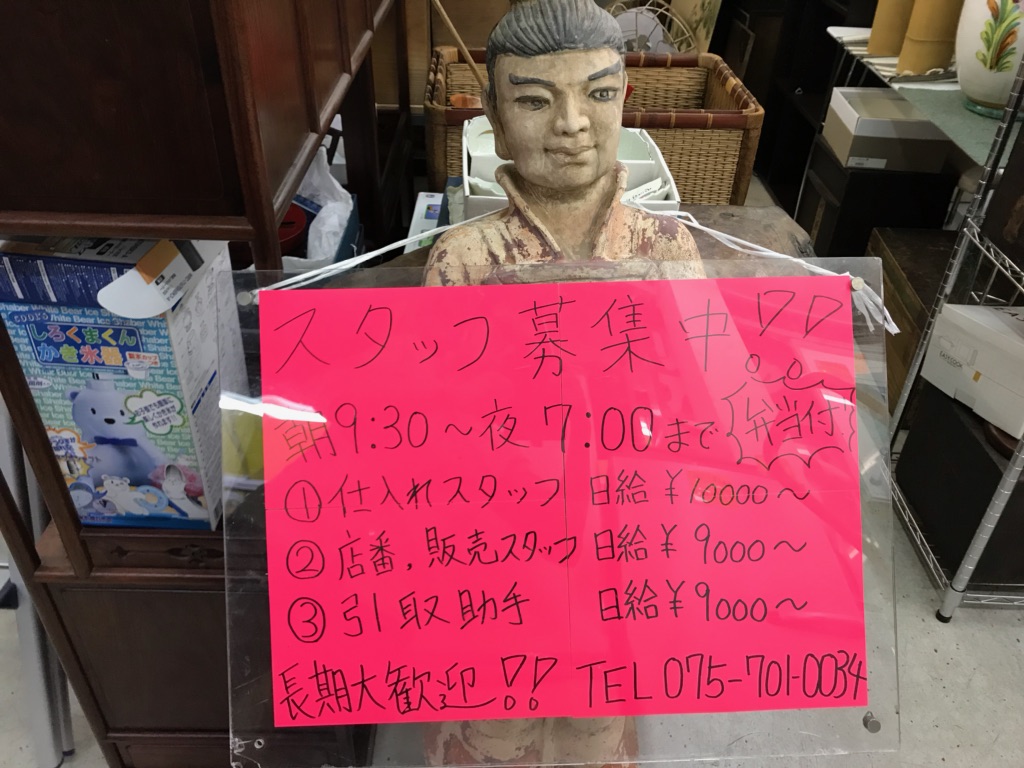 スタッフ募集中!!
朝9:30〜夜7:00まで 弁当付
①仕入れスタッフ 日給¥10000〜
②店番,販売スタッフ 日給¥9000〜
③引取助手 日給¥9000〜
長期大歓迎!! TEL 075-701-0034
しろくまくん
かき氷器